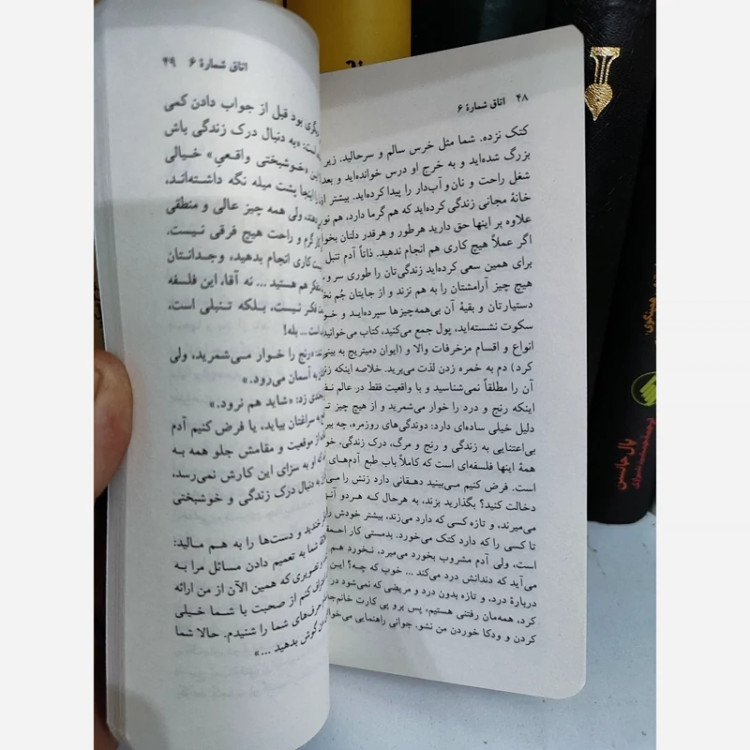 ۴۸ اتاق شمارهٔ ۶
کتک نزده. شما مثل خرس سالم و سرحالید. زیر
بزرگ شده‌اید و به خرج او درس خوانده‌اید و بعد
شغل راحت و نان و آب‌دار را پیدا کرده‌اید. بیشتر از
خانهٔ مجانی زندگی کرده‌اید که هم گرما دارد، هم نور
علاوه بر اینها حق دارید هرطور و هرقدر دلتان بخوا
اگر عملاً هیچ کاری هم انجام ندهید. ذاتاً آدم تنبل
برای همین سعی کرده‌اید زندگی‌تان را طوری سرو
هیچ چیز آرامشتان را به هم نزند و از جایتان جُم نخ
دستیارتان و بقیهٔ آن بی‌همه‌چیزها سپرده‌اید و خو
سکوت نشسته‌اید، پول جمع می‌کنید، کتاب می‌خوانید
انواع و اقسام مزخرفات والا و (ایوان دمیتریچ به بینی
کرد) دم به خمره زدن لذت می‌برید. خلاصه اینکه زن
آن را مطلقاً نمی‌شناسید و با واقعیت فقط در عالم نظ
اینکه رنج و درد را خوار می‌شمرید و از هیچ چیز
دلیل خیلی ساده‌ای دارد: دوندگی‌های روزمره، چه بیر
بی‌اعتنایی به زندگی و رنج و مرگ، درک زندگی، خو
همهٔ اینها فلسفه‌ای است که کاملاً باب طبع آدم‌های
است. فرض کنیم می‌بینید دهقانی دارد زنش را می‌
دخالت کنید؟ بگذارید بزند، به هرحال که هردو آن
می‌میرند، و تازه کسی که دارد می‌زند، بیشتر خودش را
تا کسی را که دارد کتک می‌خورد. بدمستی کار احمق
است، ولی آدم مشروب بخورد می‌میرد، نخورد هم
می‌آید که دندانش درد می‌کند ... خوب که چه؟
دربارهٔ درد، و تازه بدون درد و مریضی که نمی‌شود در
کرد، همه‌مان رفتنی هستیم، پس برو پی کارت خانم‌جا
کردن و ودکا خوردن من نشو. جوانی راهنمایی می‌خوا
اتاق شمارهٔ ۶ ۴۹
یگری بود قبل از جواب دادن کمی
است: «به دنبال درک زندگی باش
«خوشبختی واقعی» خیالی
اینجا پشت میله نگه داشته‌اند،
ولی همه چیز عالی و منطقی
گرم و راحت هیچ فرقی نیست.
کاری انجام بدهید، وجدانتان
هم هستید ... نه آقا، این فلسفه
فکر نیست، بلکه تنبلی است،
است ... بله!
«رنج را خوار می‌شمرید، ولی
به آسمان می‌رود.»
زد: «شاید هم نرود.»
سراغتان بیاید، یا فرض کنیم آدم
از موقعیت و مقامش جلو همه به
که او به سزای این کارش نمی‌رسد،
به دنبال درک زندگی و خوشبختی
خندید و دست‌ها را به هم مالید:
شما به تعمیم دادن مسائل مرا به
تصویری که همین الآن از من ارائه
کنم از صحبت با شما خیلی
حرف‌های شما را شنیدم. حالا شما
گوش بدهید ...»
همینگوی
پال جانسن
ترجمه جمشید شیرازی